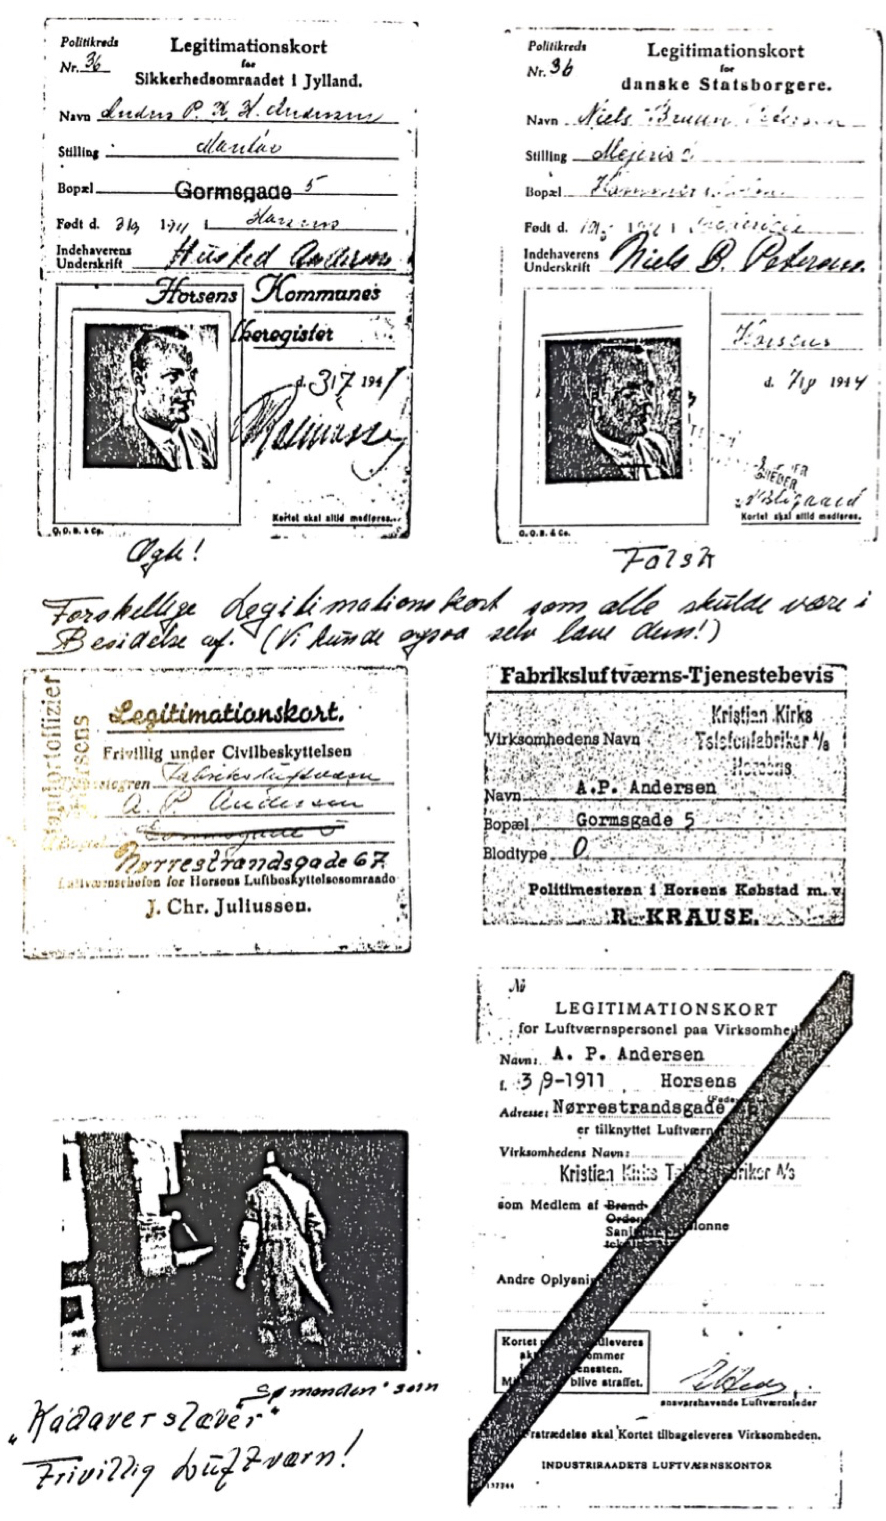 Politikreds
Nr. 36
Legitimationskort
for
Sikkerhedsomraadet i Jylland.
Navn Anders P. K. H. Andersen
Stilling
Bopæl Gormsgade 5
Født d. 3/9 1911 i Horsens
Indehaverens
Underskrift Husted Andersen
Horsens Kommunes
d. 3/7 1941
Kortet skal altid medføres.
O. O. B. & Co.
Ægte!
Politikreds
Nr. 36
Legitimationskort
for
danske Statsborgere.
Navn Niels Bruun Petersen
Stilling
Bopæl
Født d. i
Indehaverens
Underskrift Niels B. Petersen.
Horsens
d. 1944
Kortet skal altid medføres.
O. O. B. & Co.
Falsk
Forskellige Legitimationskort som alle skulde være i
Besidelse af. (Vi kunde ogsaa selv lave dem!)
Standortoffizier
Horsens
Legitimationskort.
Frivillig under Civilbeskyttelsen
A. P. Andersen
Gormsgade 5
Nørrestrandsgade 67
Luftværnschefen for Horsens Luftbeskyttelsesomraade
J. Chr. Juliussen.
Fabriksluftværns-Tjenestebevis
Virksomhedens Navn Kristian Kirks
Telefonfabriker A/s
Horsens
Navn A.P. Andersen
Bopæl Gormsgade 5
Blodtype O
Politimesteren i Horsens Købstad m. v.
R. KRAUSE.
Nr
LEGITIMATIONSKORT
for Luftværnspersonel paa
Navn: A. P. Andersen
f. 3/9-1911 Horsens
Adresse: Nørrestrandsgade
er tilknyttet
Virksomhedens Navn:
Kristian Kirks A/s
som Medlem af Brand-
Andre
Kortet
blive straffet.
ansvarshavende Luftværnsleder
skal Kortet tilbageleveres Virksomheden.
INDUSTRIRAADETS LUFTVÆRNSKONTOR
"Sømanden" som
"Kadaverslaver"
Frivillig Luftværn!